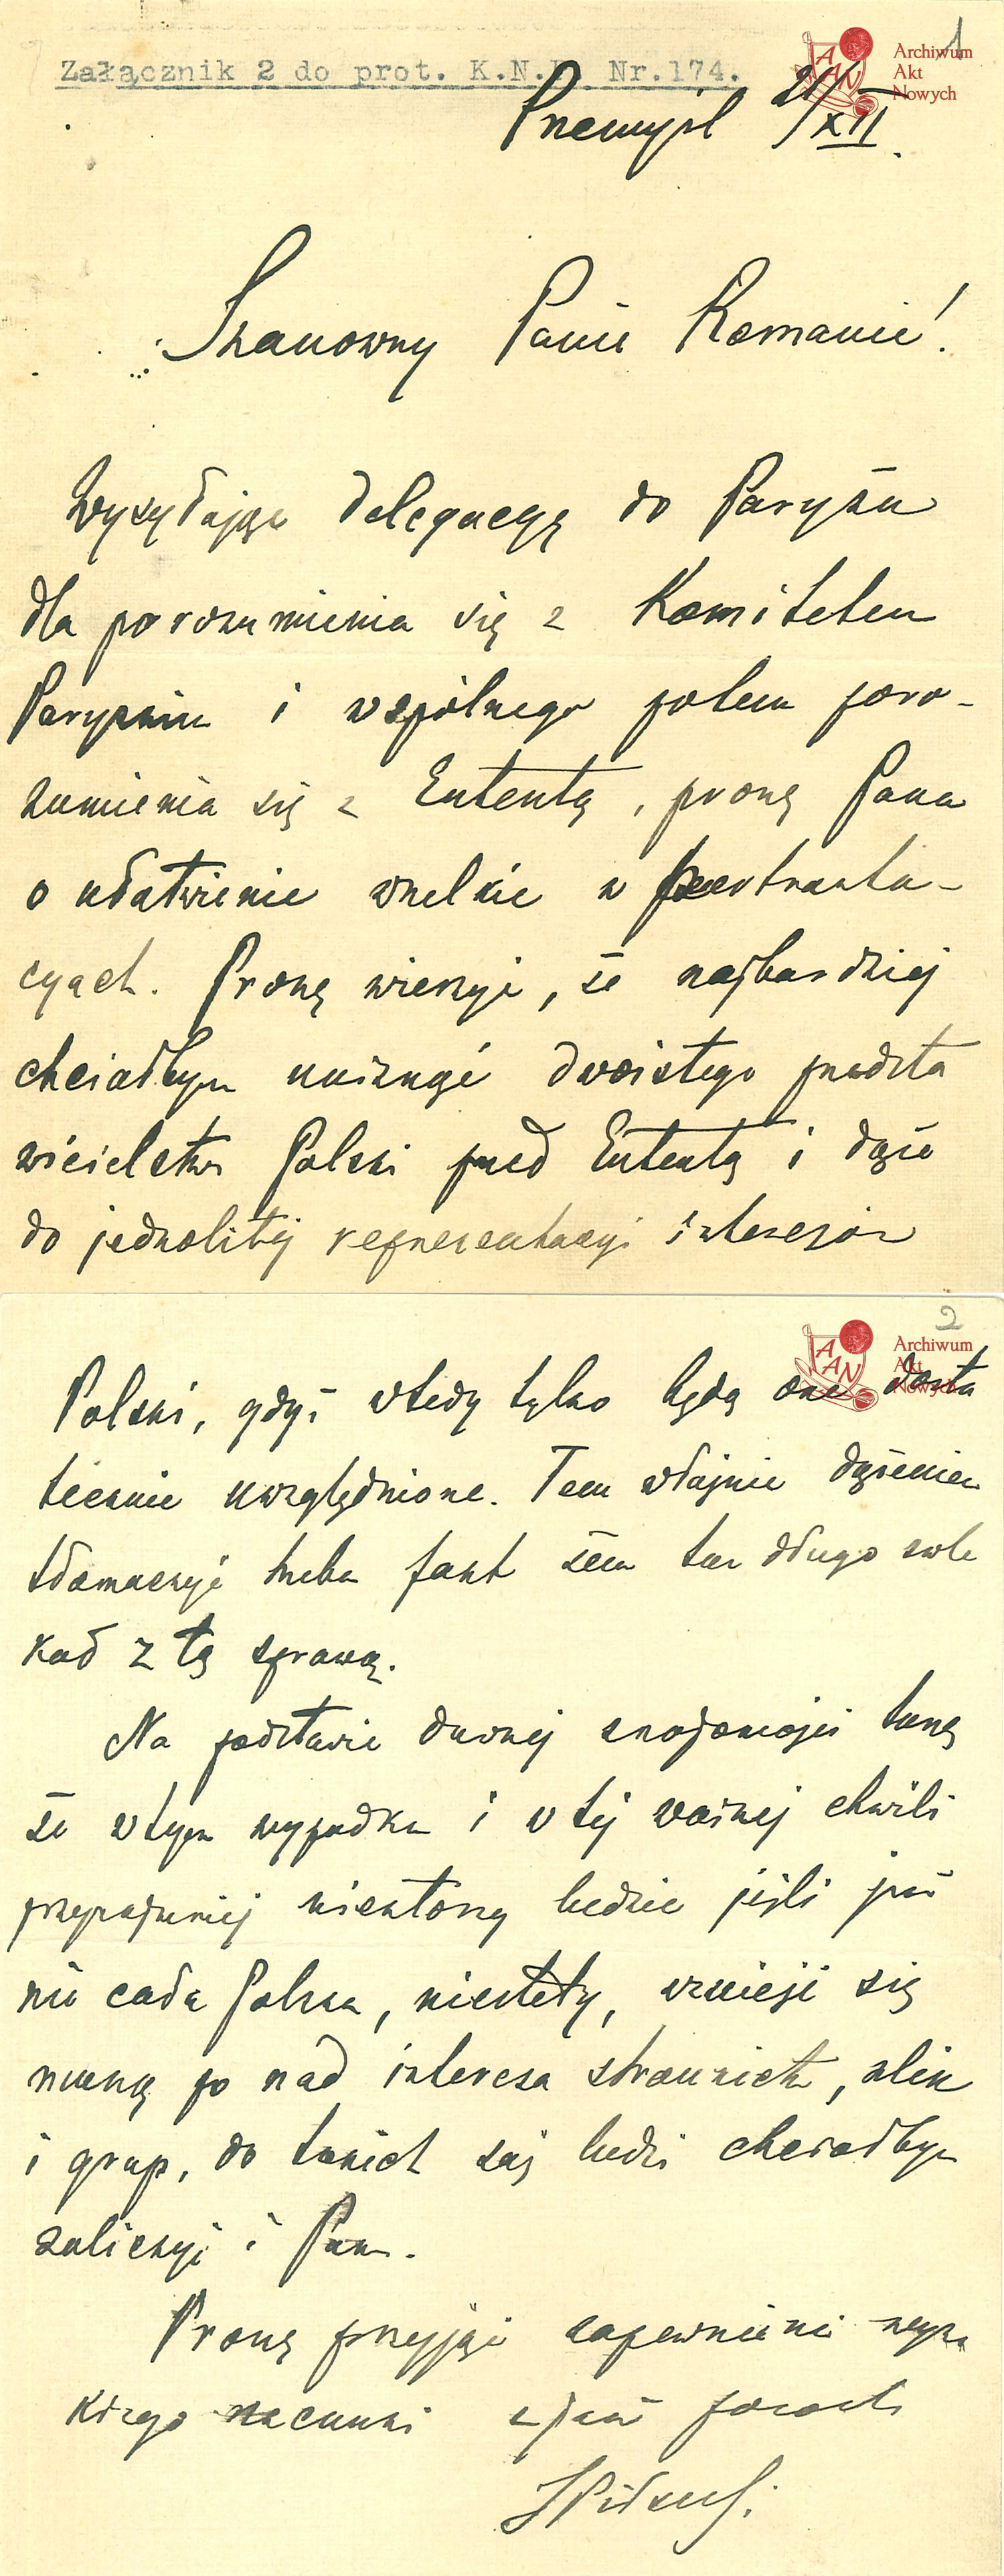 Załącznik 2 do prot. K.N.P. Nr.174.
1
Archiwum
Akt
Nowych
Przemyśl 21/XII.
Szanowny Panie Romanie!
Wysyłając delegacyę do Paryża
dla porozumienia się z Komitetem
Paryskim i wspólnego potem poro-
zumienia się z Ententą, proszę Pana
o ułatwienie wszelkie w pertrakta-
cyach. Proszę wierzyć, że najbardziej
chciałbym uniknąć dwoistego przedsta
wicielstwa Polski przed Ententą i dążę
do jednolitej reprezentacyi interesów
2
Archiwum
Akt
Nowych
Polski, gdyż wtedy tylko będą one dosta
tecznie uwzględnione. Tem właśnie dążeniem
tłomaczyć trzeba fakt żem tak długo zwle
kał z tą sprawą.
Na podstawie dawnej znajomości tuszę
że w tym wypadku i w tej ważnej chwili
przynajmniej niektórzy ludzie jeśli już
nie cała Polska, niestety, wznieść się
muszą po nad interesa stronnictw, klik
i grup, do takich zaś ludzi chciałbym
zaliczyć i Pana.
Proszę przyjąć zapewnienie wyso
kiego szacunku
J Piłsudski